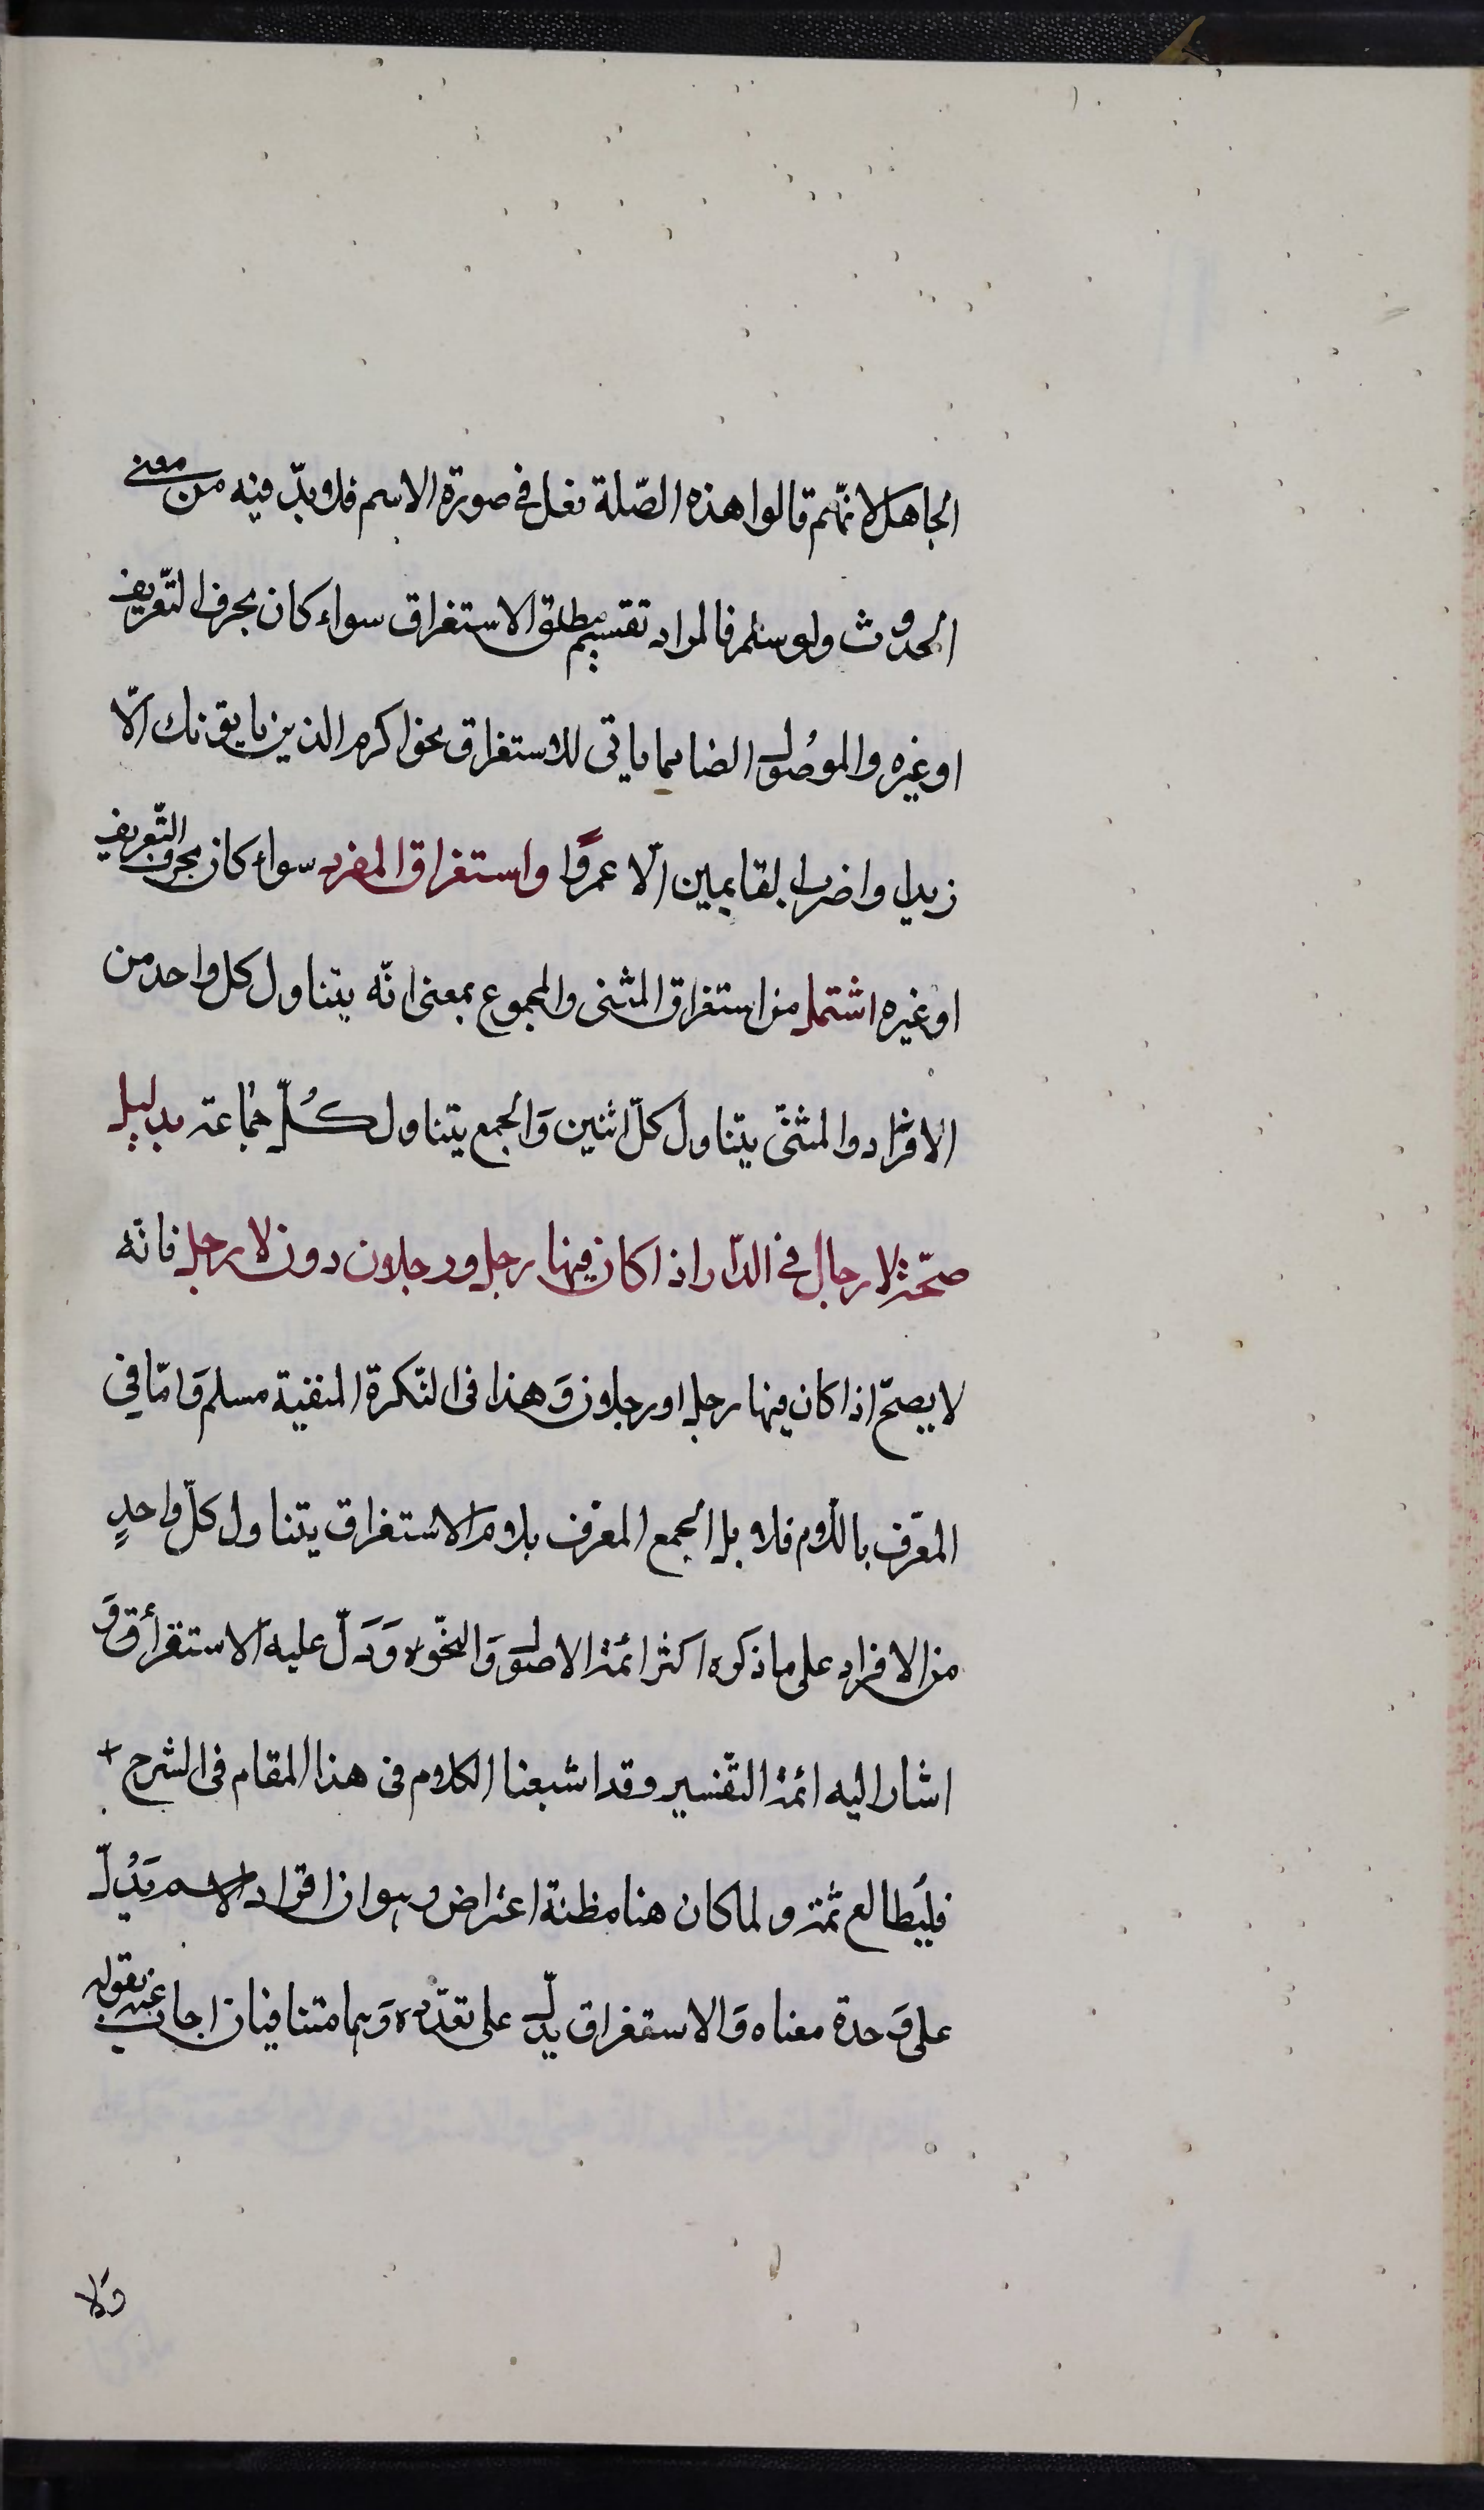 الجاهل لانّهم قالوا هذه الصّلة فعل فى صورة الاسم فلا بدّ فيه من معنى
الحدوث ولو سلم فالمراد تقسيم مطلق الاستغراق سواء كان بحرف التّعريف
او غيره والموصول ايضا مما ياتى للاستغراق نحو اكرم الذين ياتونك الّا
زيدا واضرب القايمين الّا عمرًوا واستغراق المفرد سواء كان بحرف التّعريف
او غيره اشتمل من استغراق المثنى والمجموع بمعنى انّه يتناول كل واحد من
الافراد والمثنّى يتناول كلّ اثنين وَالجمع يتناول كُلّ جماعة بدليل
صحّة لا رجال فى الدّار اذا كان فيها رجل ورجلان دون لا رجل فانّه
لا يصحّ اذا كان فيها رجل او رجلان وَهذا فى النّكرة المنفية مسلم وَامّا فى
المعّرف باللّام فلا بل الجمع المعرّف بلام الاستغراق يتناول كلّ واحدٍ
من الافراد على ما ذكره اكثر ائمة الاصول وَالنّحو وَدَلّ عليه الاستقرأق وَ
اشار اليه ائمة التّفسير وقد اشبعنا الكلام فى هذا المقام فى الشرح
فليُطالع ثمّة ولما كان هنا مظنة اعتراض وهو ان افراد الاسم يَدُلّ
على وَحدة معناه وَالاستغراق يدلّ على تعدّده وَهما متنافيان اجاب عنه بقوله
وَلا